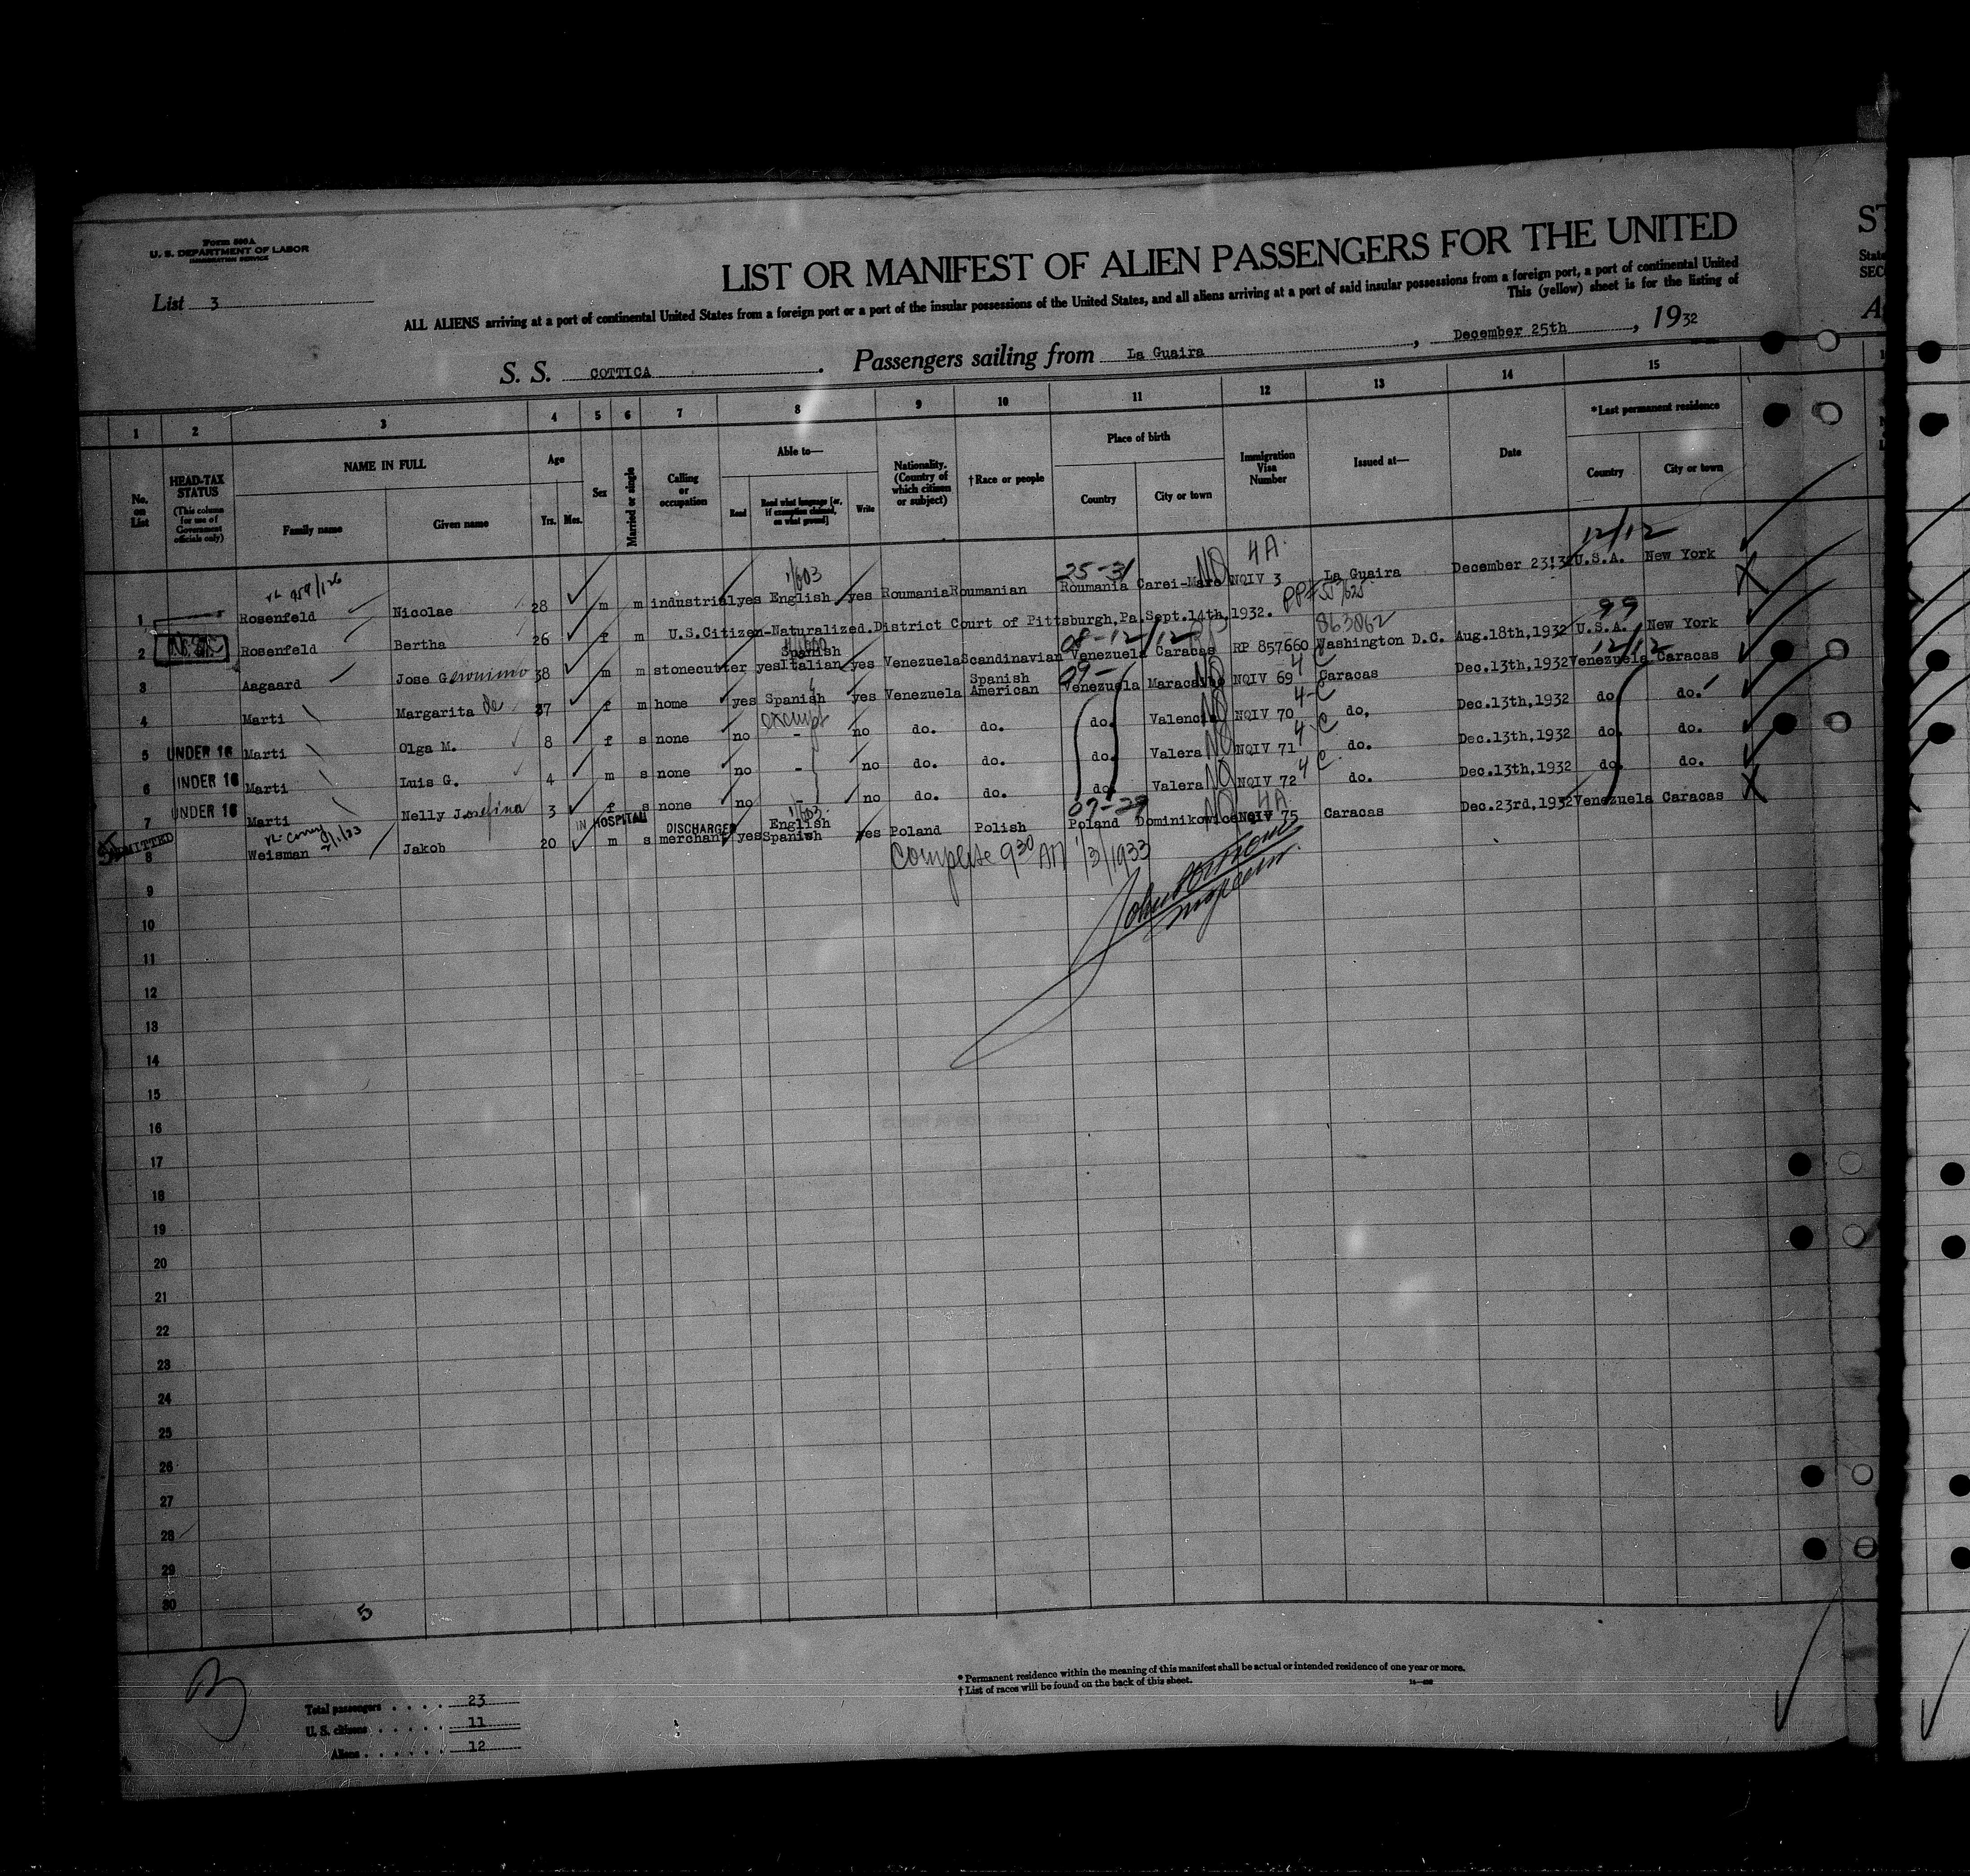 Form 500A
U. S. DEPARTMENT OF LABOR
IMMIGRATION SERVICE
List 3
LIST OR MANIFEST OF ALIEN PASSENGERS FOR THE UNITED
ALL ALIENS arriving at a port of continental United States from a foreign port or a port of the insular possessions of the United States, and all aliens arriving at a port of said insular possessions from a foreign port, a port of continental United
This (yellow) sheet is for the listing of
S. S. COTTICA. Passengers sailing from La Guaira, December 25th, 1932
1 2 3 4 5 6 7 8 9 10 11 12 13 14 15
No. on List
HEAD-TAX STATUS (This column for use of Government officials only)
NAME IN FULL
Family name Given name
Age
Yrs. Mos.
Sex
Married or single
Calling or occupation
Able to—
Read Read what language [or, if exemption claimed, on what ground] Write
Nationality. (Country of which citizen or subject)
†Race or people
Place of birth
Country City or town
Immigration Visa Number
Issued at—
Date
*Last permanent residence
Country City or town
11/603 25-31 NO 4A. 12/12
1 Rosenfeld Nicolae 28 m m industrial yes English yes Roumania Roumanian Roumania Carei-Mare NQIV 3 La Guaira December 23!32 U.S.A. New York
2 Rosenfeld Bertha 26 f m U.S.Citizen-Naturalized.District Court of Pittsburgh,Pa.Sept.14th,1932.
863062 99
08-12/12
Spanish
3 Aagaard Jose Geronimo 38 m m stonecutter yes Italian yes Venezuela Scandinavian Venezuela Caracas RP 857660 Washington D.C. Aug.18th,1932 U.S.A. New York
09- NO 4 C 12/12
Spanish
4 Marti Margarita de 37 f m home yes Spanish yes Venezuela American Venezuela Maracaibo NQIV 69 Caracas Dec.13th,1932 Venezuela Caracas
exempt NO 4-C
5 UNDER 16 Marti Olga M. 8 f s none no - no do. do. do. Valencia NQIV 70 do, Dec.13th,1932 do do.
NO 4-C
6 UNDER 16 Marti Luis G. 4 m s none no - no do. do. do. Valera NQIV 71 do. Dec.13th,1932 do do.
NO 4 C
7 UNDER 16 Marti Nelly Josefina 3 f s none no - no do. do. do. Valera NQIV 72 do. Dec.13th,1932 do. do.
ADMITTED IN HOSPITAL DISCHARGED 11/603 07-29 NO 4A
English
8 Weisman Jakob 20 m s merchant yes Spanish yes Poland Polish Poland Dominikowice NQIV 75 Caracas Dec.23rd,1932 Venezuela Caracas
Complete 9 30 AM 1/3/1933
Inspector.
9
10
11
12
13
14
15
16
17
18
19
20
21
22
23
24
25
26
27
28
29
30
5
Total passengers . . . . 23
U. S. citizens . . . . . . 11
Aliens . . . . . . 12
* Permanent residence within the meaning of this manifest shall be actual or intended residence of one year or more.
† List of races will be found on the back of this sheet.